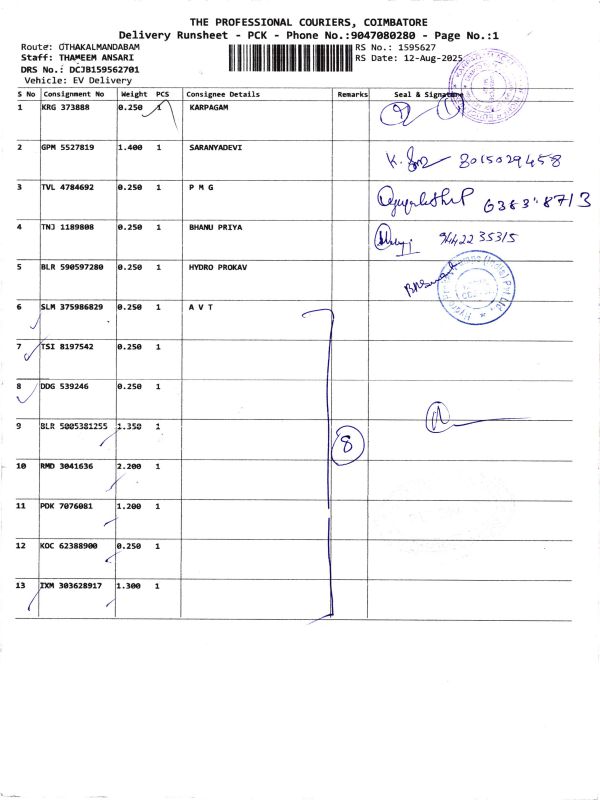 THE PROFESSIONAL COURIERS, COIMBATORE
Delivery Runsheet - PCK - Phone No.:9047080280 - Page No.:1
Route: OTHAKALMANDABAM
Staff: THAMEEM ANSARI
DRS No.: DCJB159562701
Vehicle: EV Delivery
RS No.: 1595627
RS Date: 12-Aug-2025
S No Consignment No Weight PCS Consignee Details Remarks Seal & Signature
1 KRG 373888 0.250 1 KARPAGAM
2 GPM 5527819 1.400 1 SARANYADEVI K. 8015029458
3 TVL 4784692 0.250 1 P M G
4 TNJ 1189808 0.250 1 BHANU PRIYA 9442235315
5 BLR 590597280 0.250 1 HYDRO PROKAV
6 SLM 375986829 0.250 1 A V T
7 TSI 8197542 0.250 1
8 DDG 539246 0.250 1
9 BLR 5005381255 1.350 1
8
10 RMD 3041636 2.200 1
11 PDK 7076081 1.200 1
12 KOC 62388900 0.250 1
13 IXM 303628917 1.300 1